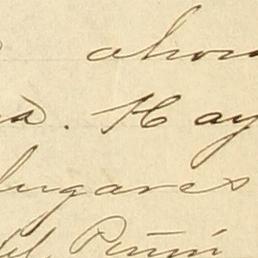 ahora
a. Hay
lugares
del Pinní